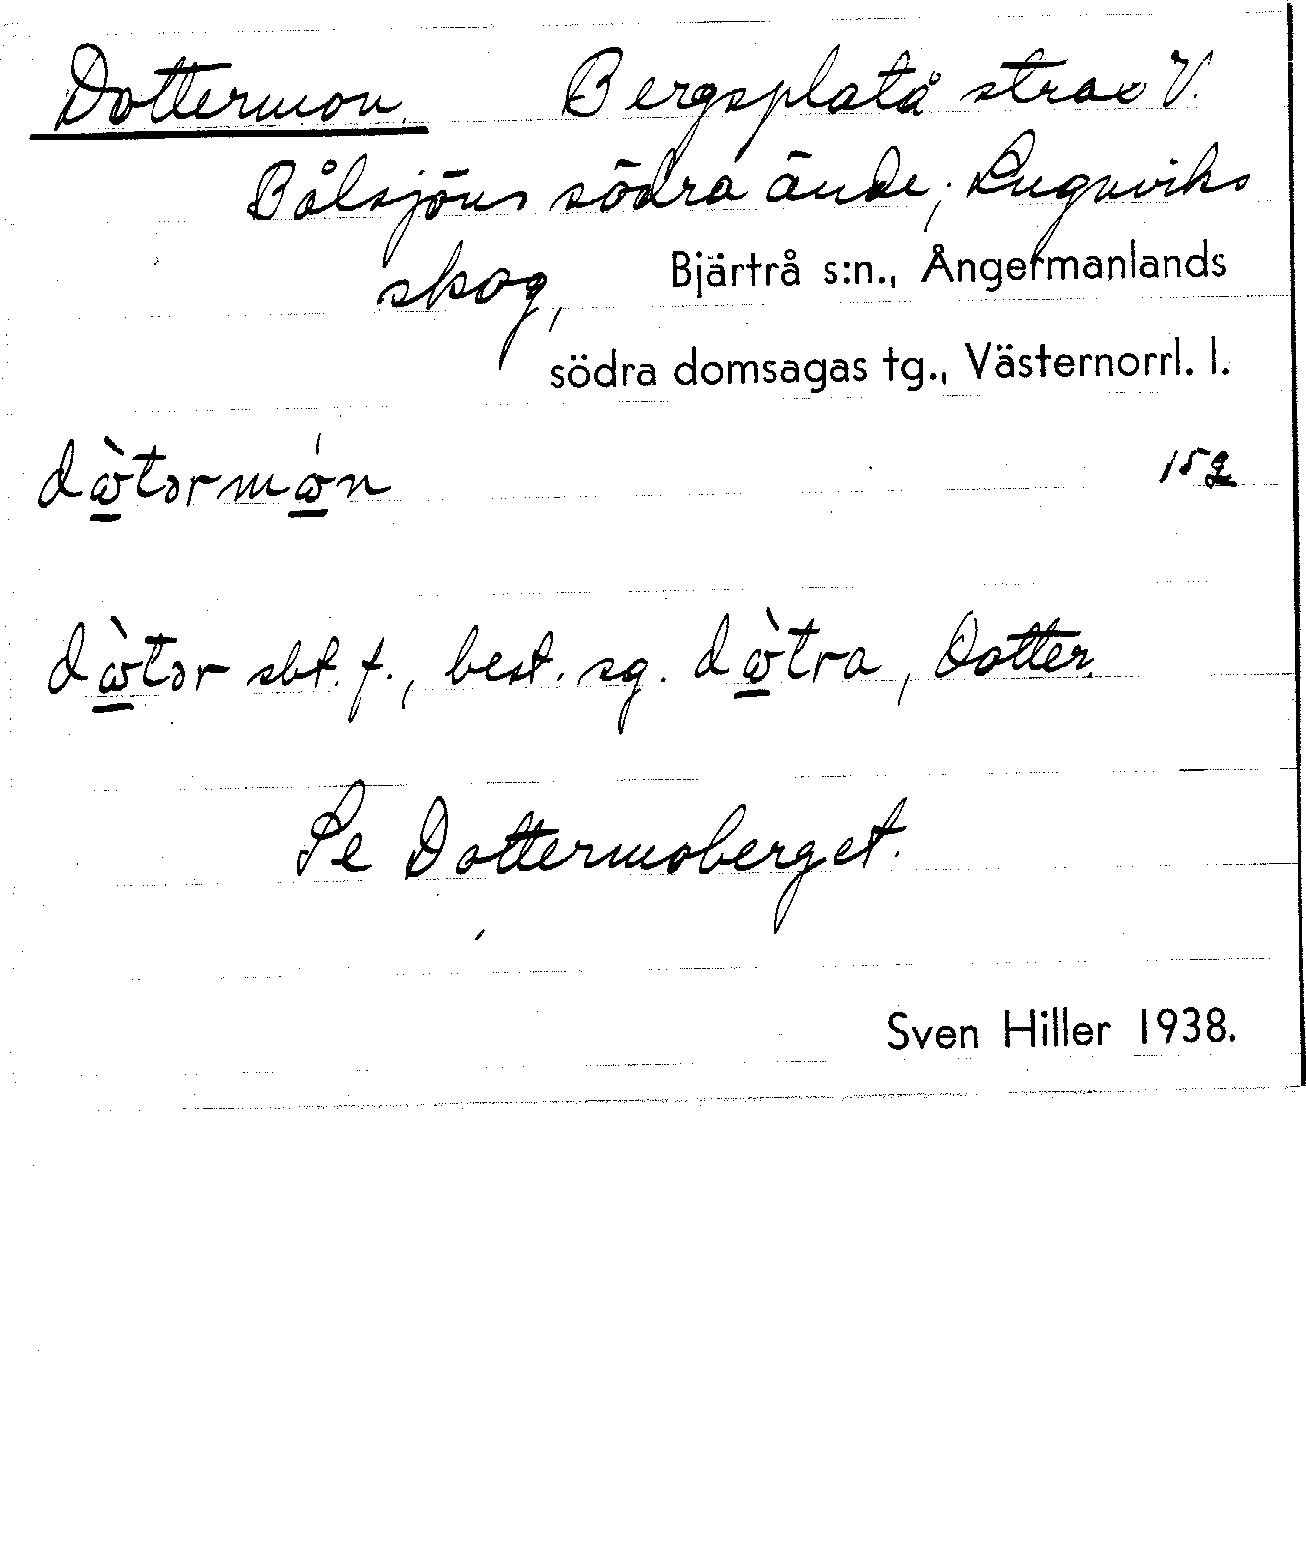 Dottermon. Bergsplatå strax V.
Bålsjöns södra ände; Lugnviks
skog, Bjärtrå s:n., Ångermanlands
södra domsagas tg., Västernorrl. l.
dὼ̲tərmώ̲n
dὼ̲tər sbt. f., best. sg. dὼ̲tra, Dotter.
Se Dottermoberget.
Sven Hiller 1938.